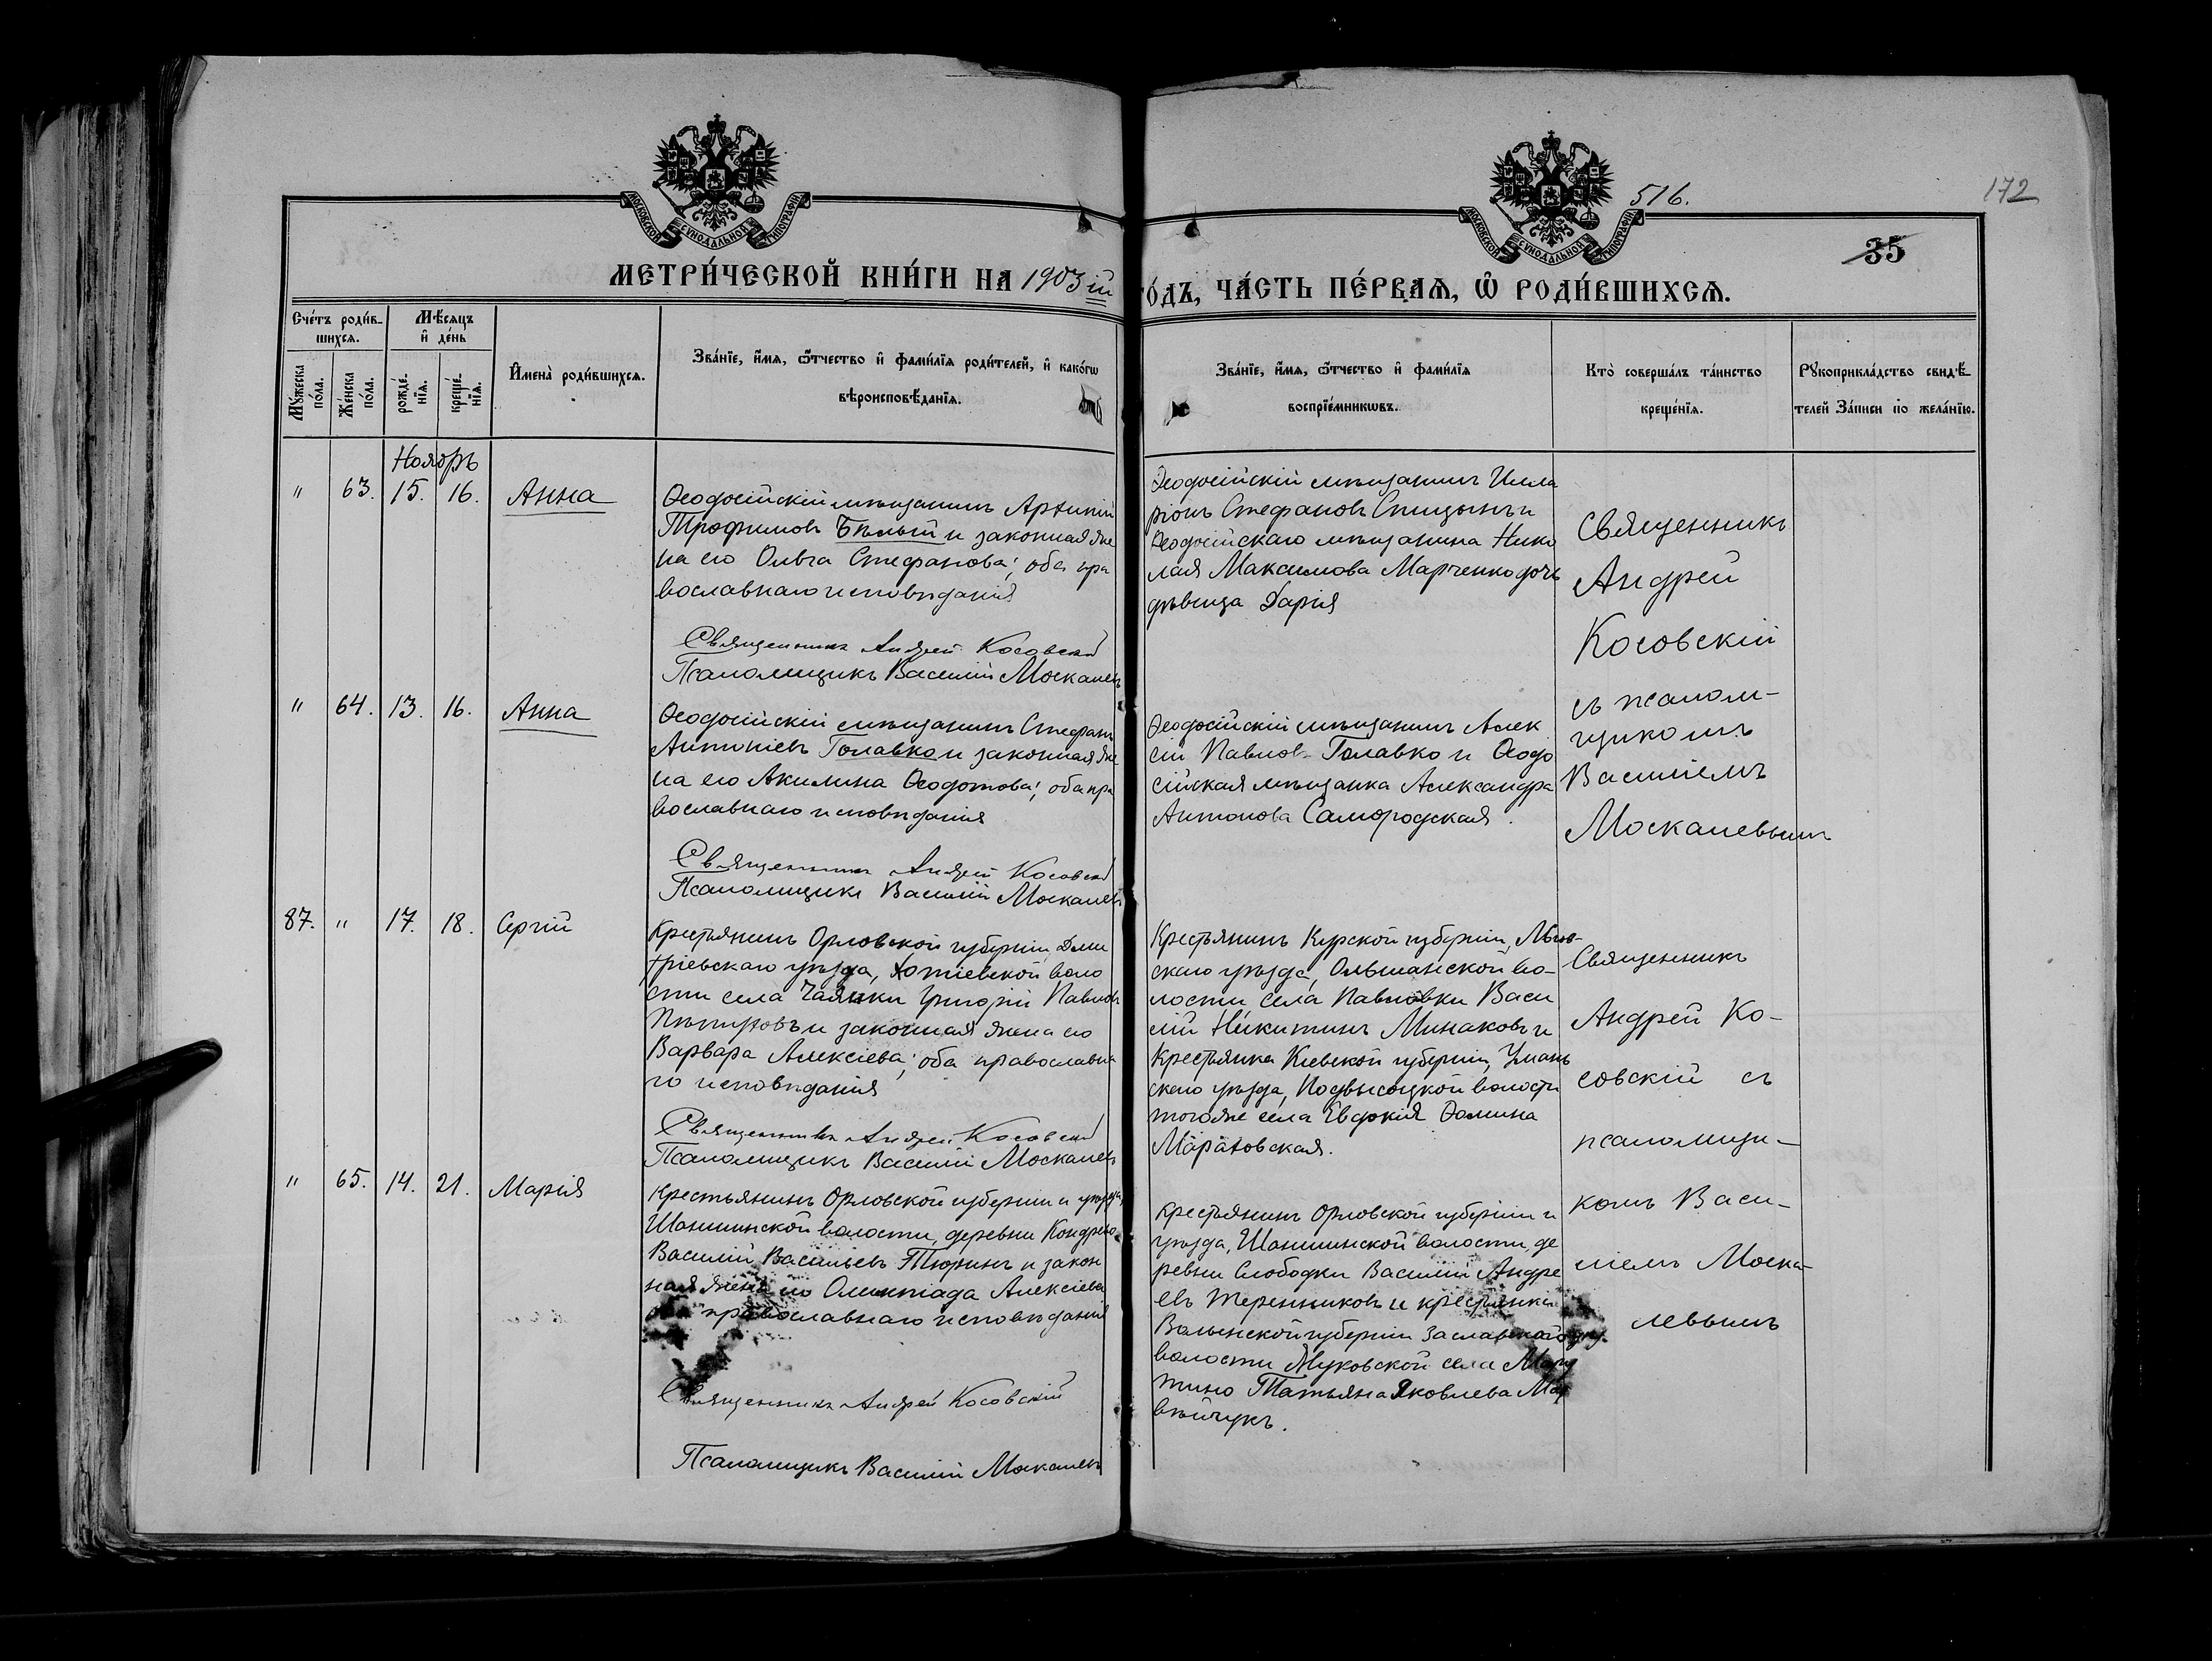 516.
172
35
МОСКОВСКОЙ СѴНОДАЛЬНОЙ ТИПОГРАФІИ
МОСКОВСКОЙ СѴНОДАЛЬНОЙ ТИПОГРАФІИ
МЕТРИ́ЧЕСКОЙ КНИ́ГИ НА 1903 ій
ГО́ДЪ, ЧА́СТЬ ПЕ́РВАѦ, Ѽ РОДИ́ВШИХСѦ.
Сче́тъ роди́в-
шихсѧ.
Мѣ́сѧцъ
и҆ де́нь
Мꙋ́жеска
по́ла.
Же́нска
по́ла.
рожде́-
нїѧ.
креще́-
нїѧ.
И҆мена̀ роди́вшихсѧ.
Зва́нїе, и҆́мѧ, ѻ҆́тчество и҆ фами́лїѧ роди́телей, и҆ како́гѡ
вѣроисповѣ́данїѧ.
Зва́нїе, и҆́мѧ, ѻ҆́тчество и҆ фами́лїѧ
воспрїе́мникѡвъ.
Кто̀ соверша́лъ та́инство
креще́нїѧ.
Рꙋкоприкла́дство свидѣ́-
телей За́писи по жела́нїю.
Ноябрь
" 63. 15. 16. Анна
Ѳеодосійскій мѣщанинъ
Трофимовъ Бѣлый и законная же
на его Ольга Стефанова; оба пра
вославнаго исповѣданія
Священникъ Андрей Косовскій
Псаломщикъ Василій Москалевъ
Ѳеодосійскій мѣщанинъ Илла
ріонъ Стефановъ Спицынъ и
Ѳеодосійскаго мѣщанина Нико
лая Максимова Марченко дочь
дѣвица Дарія
Священникъ
Андрей
Косовскій
съ псалом-
щикомъ
Василіемъ
Москалевымъ
" 64. 13. 16. Анна
Ѳеодосійскій мѣщанинъ Стефанъ
Антоніевъ Голавко и законная же
на его Акилина Ѳеодотова; оба пра
вославнаго исповѣданія
Священникъ Андрей Косовскій
Псаломщикъ Василій Москалевъ
Ѳеодосійскій мѣщанинъ Алек
сій Павловъ Голавко и Ѳеодо
сійская мѣщанка Александра
Антонова Самородская.
87. " 17. 18. Сергій
Крестьянинъ Орловской губерніи, Дми
тріевскаго уѣзда, воло
сти села Григорій Павловъ
Пѣтуховъ и законная жена его
Варвара Алексіева; оба православна
го исповѣданія
Священникъ Андрей Косовскій
Псаломщикъ Василій Москалевъ
Крестьянинъ Курской губерніи, Льгов-
скаго уѣзда, Ольшанской во-
лости села Павловки Васи
лій Никитинъ Минаковъ и
крестьянка Кіевской губерніи, Уман
скаго уѣзда, Подвысоцкой волости
того же села Евдокія Ѳомина
Мараховская.
Священникъ
Андрей Ко-
совскій съ
псаломщи-
комъ Васи-
ліемъ Моска-
левымъ
" 65. 14. 21. Марія
Крестьянинъ Орловской губерніи и уѣзда,
волости, деревни
Василій Васильевъ Тюринъ и закон
ная жена его Олимпіада Алексіева
оба православнаго исповѣданія
Священникъ Андрей Косовскій
Псаломщикъ Василій Москалевъ
Крестьянинъ Орловской губерніи и
уѣзда, волости, де
ревни Слободки Василій Андре
евъ и крестьянка
Волынской губерніи Заславскаго уѣз.
волости села
Татьяна Яковлева